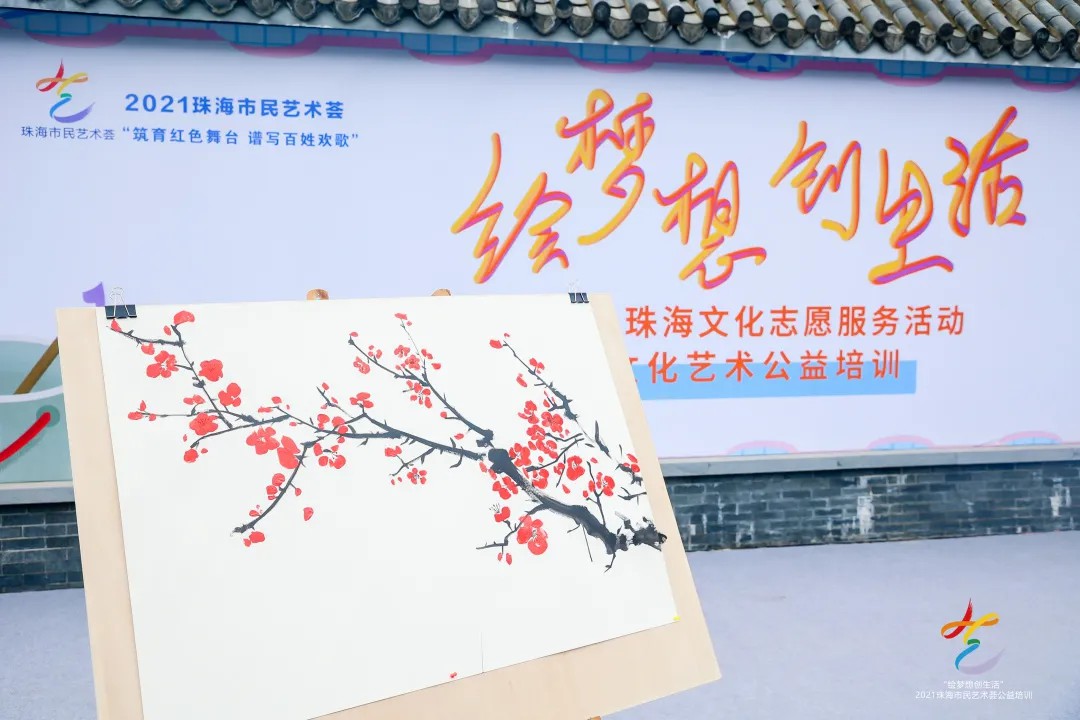 2021珠海市民艺术荟
珠海市民艺术荟
“筑育红色舞台 谱写百姓欢歌”
绘梦想 创生活
珠海文化志愿服务活动
文化艺术公益培训
“绘梦想创生活”
2021珠海市民艺术荟公益培训